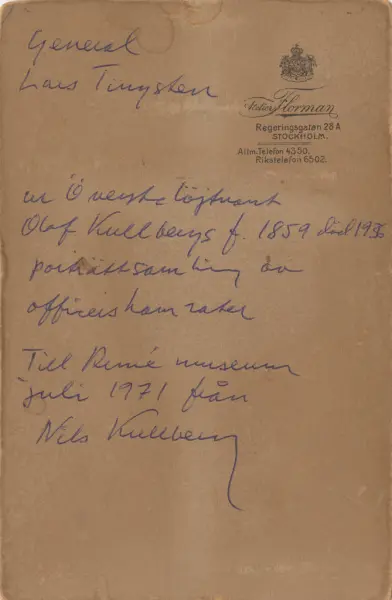 General
Lars Tingsten
Atelier Florman
Regeringsgatan 28 A
STOCKHOLM.
Allm. Telefon 4350.
Rikstelefon 6502.
ur Överstelöjtnant
Olof Kullbergs f. 1859 död 1936
porträttsamling av
officerskamrater
Till Armémuseum
juli 1971 från
Nils Kullberg